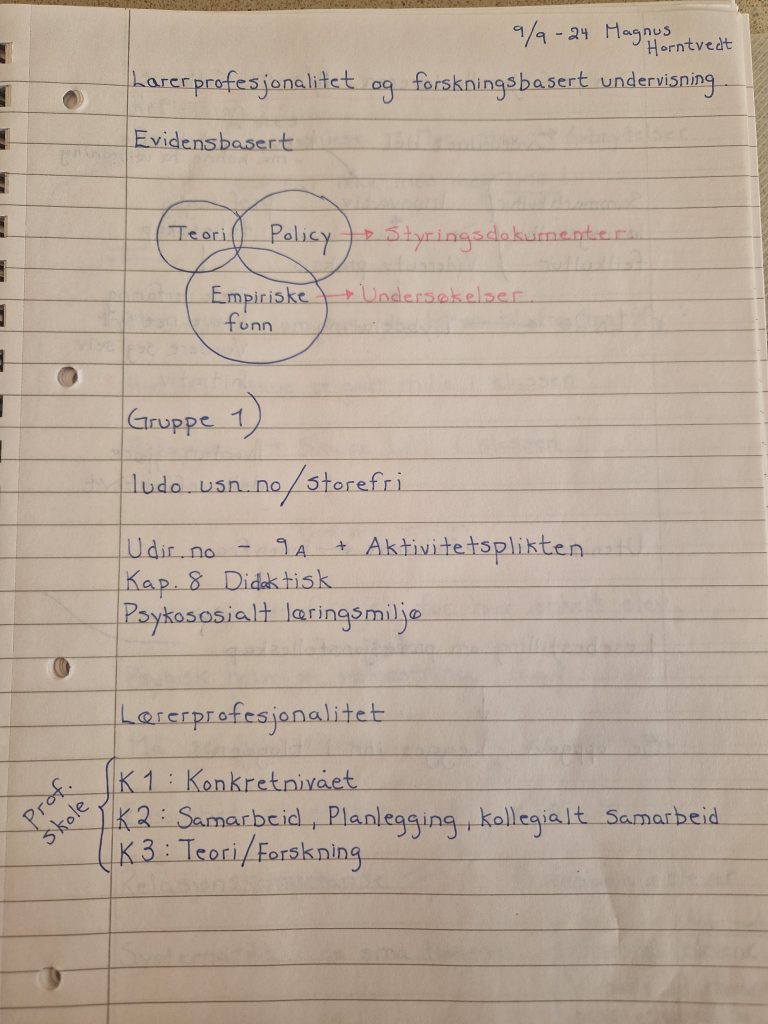 9/9 - 24 Magnus
Horntvedt
Lærerprofesjonalitet og forskningsbasert undervisning.
Evidensbasert
Teori Policy → Styringsdokumenter.
Empiriske → Undersøkelser.
funn
Gruppe 1)
ludo.usn.no/storefri
Udir.no - 9A + Aktivitetsplikten
Kap. 8 Didaktisk
Psykososialt læringsmiljø
Lærerprofesjonalitet
Prof.
skole
K1 : Konkretnivået
K2 : Samarbeid, Planlegging, kollegialt samarbeid
K3 : Teori/Forskning